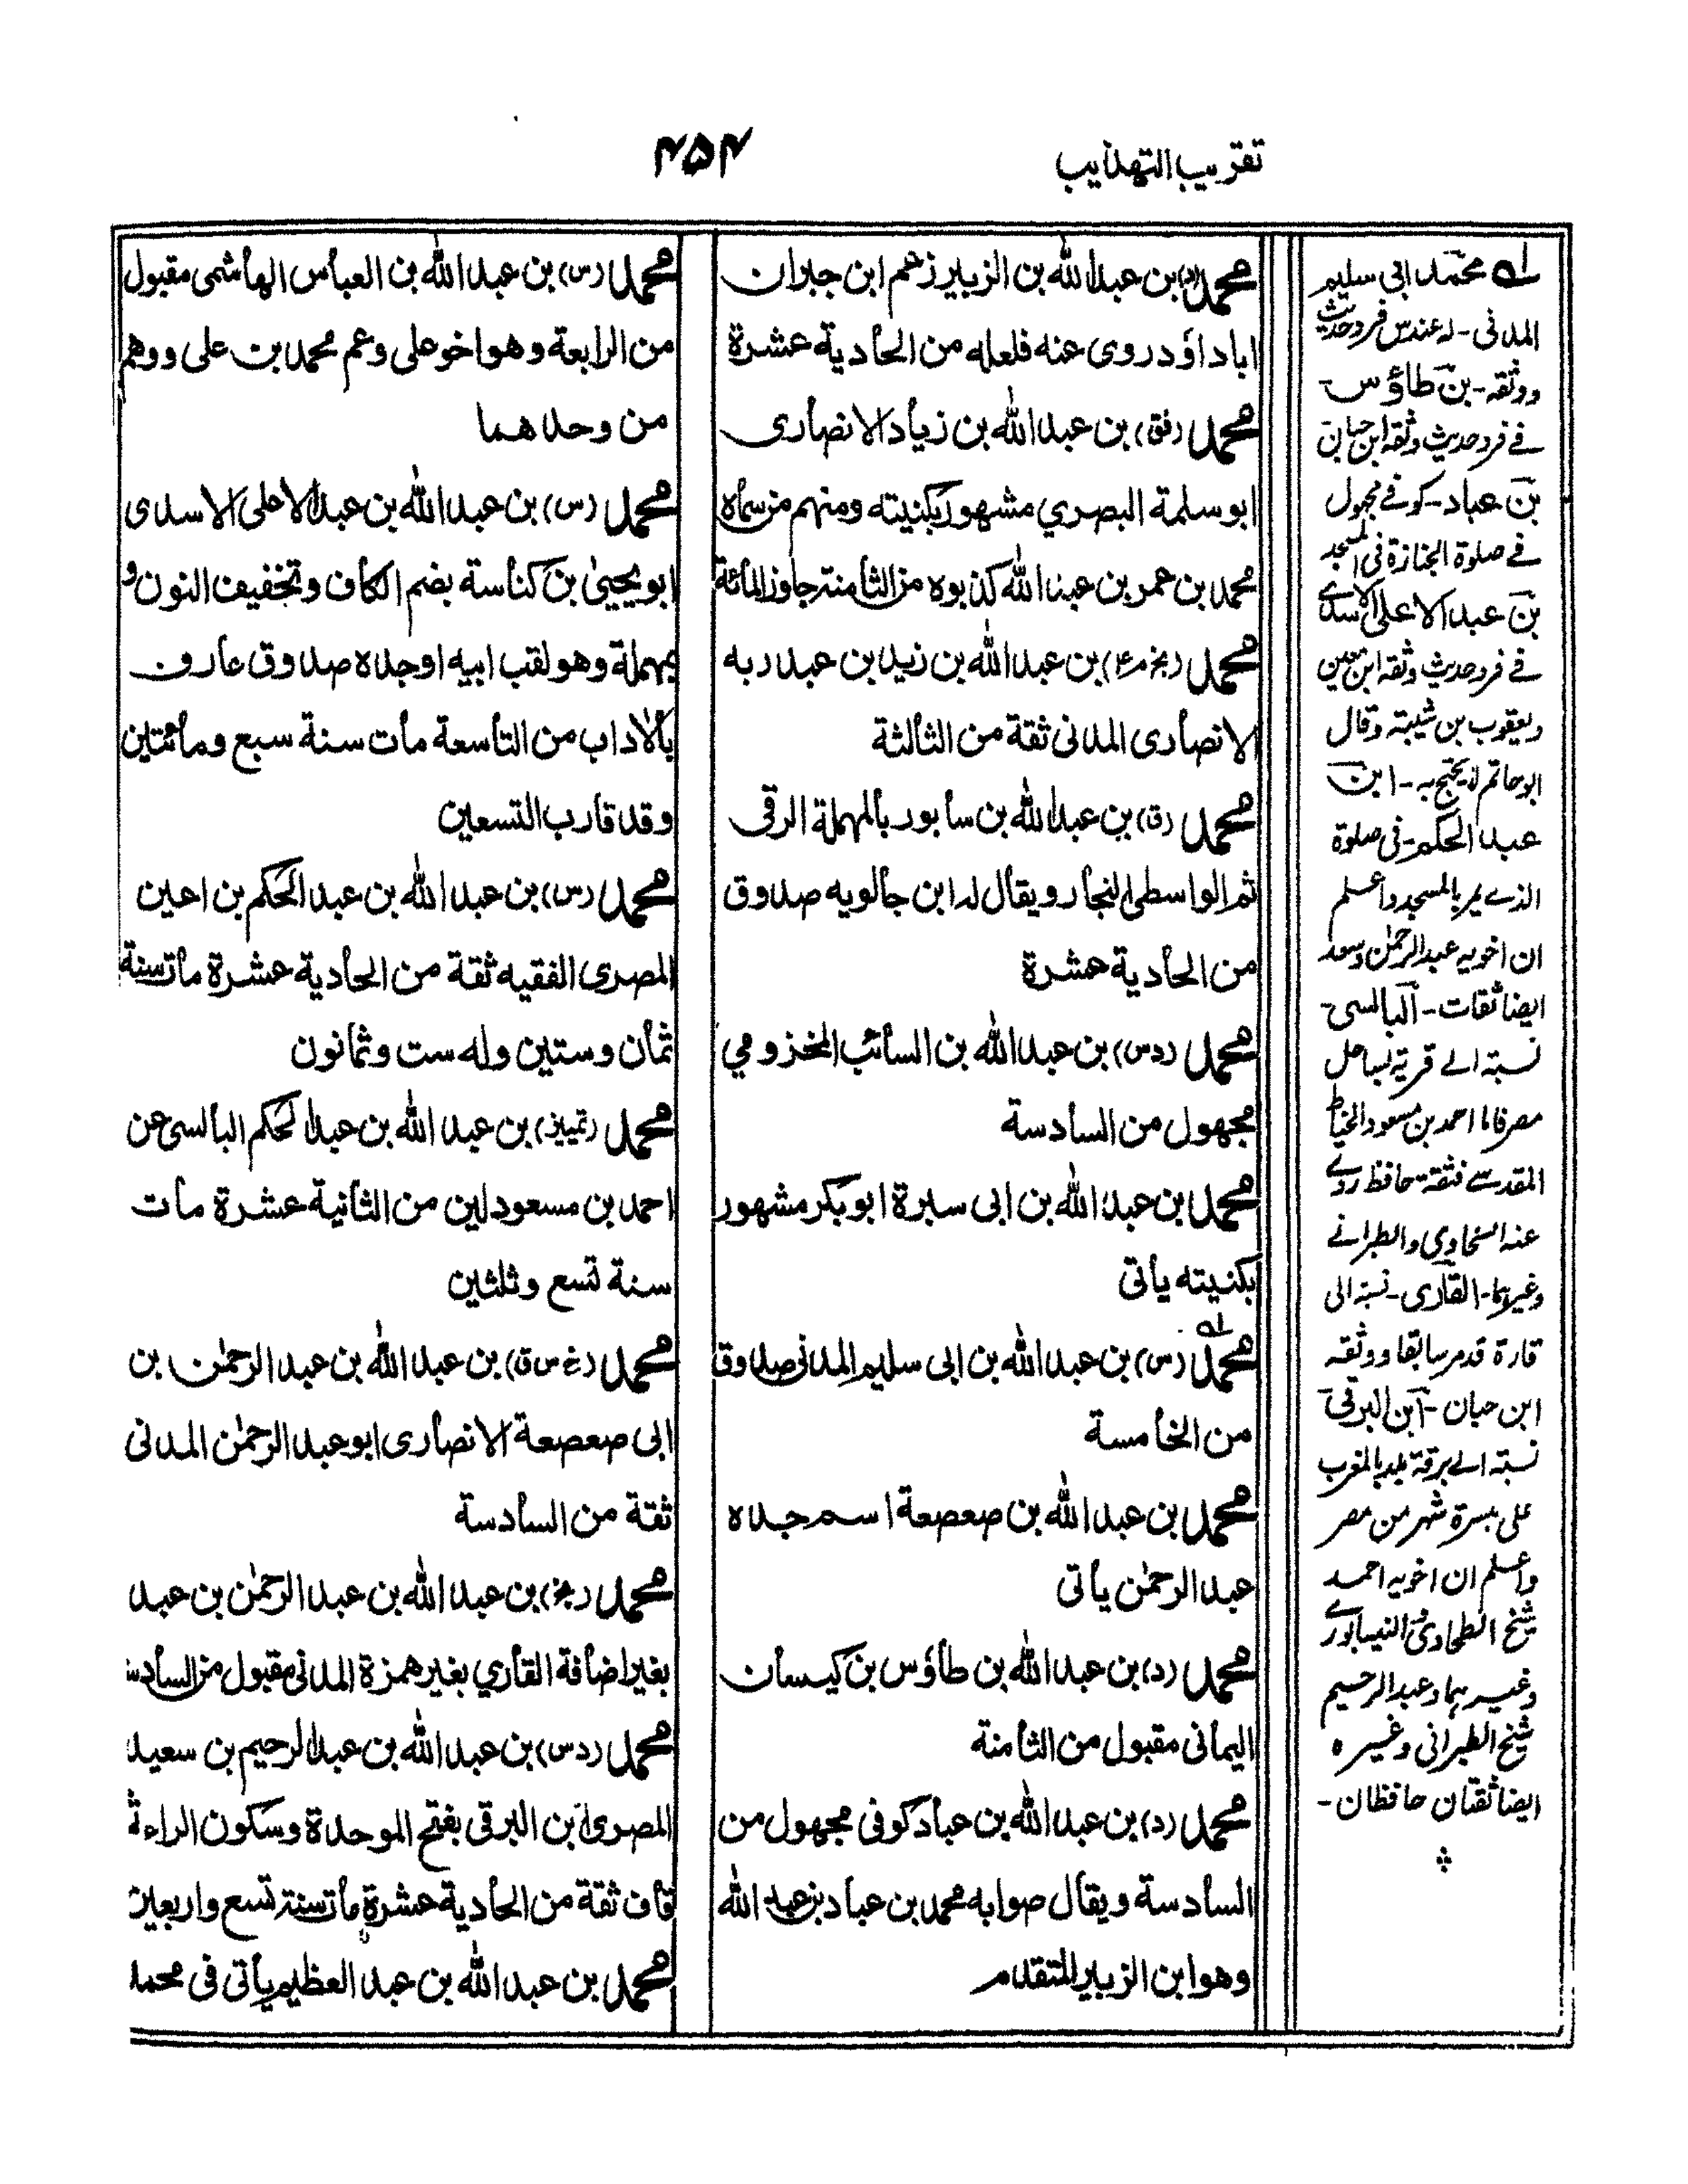 تقريب التهذيب
۴۵۴
محمد (د) بن عبدالله بن الزبير زعم ابن جبران
اباداؤد روى عنه فلعله من الحادية عشرة
محمد (فق) بن عبدالله بن زياد الانصارى
ابوسلمة البصري مشهور بكنيته ومنهم من سماه
محمد بن عمر بن عبدالله كذبوه من الثامنة جاوز المائة
محمد (بخ م ٤) بن عبدالله بن زيد بن عبد ربه
الانصارى المدنى ثقة من الثالثة
محمد (ق) بن عبدالله بن سابور بالمهملة الرقى
ثم الواسطى النجار ويقال له ابن جالويه صدوق
من الحادية عشرة
محمد (دس) بن عبدالله بن السائب المخزومي
مجهول من السادسة
محمد بن عبدالله بن ابى سبرة ابوبكر مشهور
بكنيته يأتى
محمد (س) بن عبدالله بن ابى سليم المدنى صدوق
من الخامسة
محمد بن عبدالله بن صعصعة اسم جده
عبد الرحمٰن يأتى
محمد (د) بن عبدالله بن طاؤس بن كيسان
اليمانى مقبول من الثامنة
محمد (د) بن عبدالله بن عباد كوفى مجهول من
السادسة ويقال صوابه محمد بن عباد بن عبد الله
وهو ابن الزبير المتقدم
محمد (س) بن عبدالله بن العباس الهاشمى مقبول
من الرابعة وهو اخو على وعم محمد بن على ووهم
من وحدهما
محمد (س) بن عبدالله بن عبدالاعلى الاسدى
ابويحيىٰ بن كناسة بضم الكاف وتخفيف النون و
بمهملة وهو لقب ابيه اوجده صدوق عارف
بالاداب من التاسعة مات سنة سبع ومائتين
وقد قارب التسعين
محمد (س) بن عبدالله بن عبد الحكم بن اعين
المصرى الفقيه ثقة من الحادية عشرة مات سنة
ثمان وستين وله ست وثمانون
محمد (تمييز) بن عبد الله بن عبد الحكم البالسى عن
احمد بن مسعود لين من الثانية عشرة مات
سنة تسع وثلثين
محمد (خ س ق) بن عبد الله بن عبد الرحمٰن بن
ابى صعصعة الانصارى ابوعبد الرحمٰن المدنى
ثقة من السادسة
محمد (بخ) بن عبد الله بن عبد الرحمٰن بن عبد
بغير اضافة القاري بغير همزة المدنى مقبول من السادسة
محمد (دس) بن عبد الله بن عبد الرحيم بن سعيد
المصرى ابن البرقى بفتح الموحدة وسكون الراء ثم
قاف ثقة من الحادية عشرة مات سنة تسع واربعين
محمد بن عبد الله بن عبد العظيم يأتى فى محمد
له محمد ابى سليم
المدنى - له عند س فرد حديث
ووثقه - بن طاؤس
فے فرد حديث وثقه ابن حبان
بن عباد - كوفے مجهول
فے صلوة الجنازة فى المسجد
بن عبد الاعلى الاسدے
فے فرد حديث وثقه ابن معين
ويعقوب بن شيبة وقال
ابوحاتم لا يحتج به - ابن
عبد الحكم - فى صلوة
الذے يمر بالمسجد واعلم
ان اخويه عبد الرحمٰن وسعد
ايضا ثقات - البالسى
نسبة الے قرية بساحل
مصر فاما احمد بن مسعود الخياط
المقدسے فثقة حافظ روے
عنه الطحاوى والطبرانے
وغيرهما - القارى - نسبة الى
قارة قدم سابقا ووثقه
ابن حبان - ابن البرقى
نسبة الے برقة بلد بالمغرب
على مسيرة شهر من مصر
واعلم ان اخويه احمد
شيخ الطحاوى النيسابورے
وغيرهما وعبد الرحيم
شيخ الطبرانى وغيره
ايضا ثقتان حافظان -